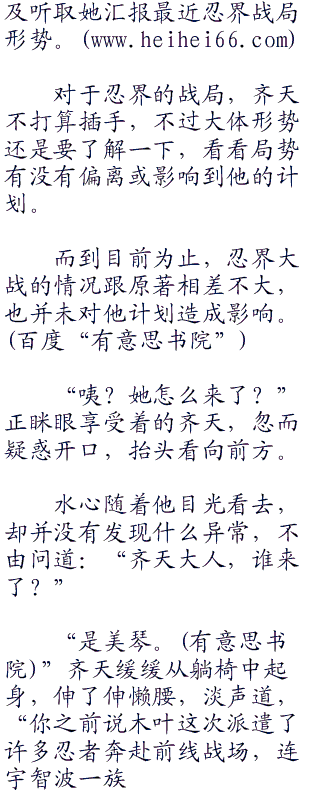 及听取她汇报最近忍界战局
形势。(www.heihei66.com)
对于忍界的战局，齐天
不打算插手，不过大体形势
还是要了解一下，看看局势
有没有偏离或影响到他的计
划。
而到目前为止，忍界大
战的情况跟原著相差不大，
也并未对他计划造成影响。
(百度“有意思书院”)
“咦？她怎么来了？”
正眯眼享受着的齐天，忽而
疑惑开口，抬头看向前方。
水心随着他目光看去，
却并没有发现什么异常，不
由问道：“齐天大人，谁来
了？”
“是美琴。(有意思书
院)”齐天缓缓从躺椅中起
身，伸了伸懒腰，淡声道，
“你之前说木叶这次派遣了
许多忍者奔赴前线战场，连
宇智波一族